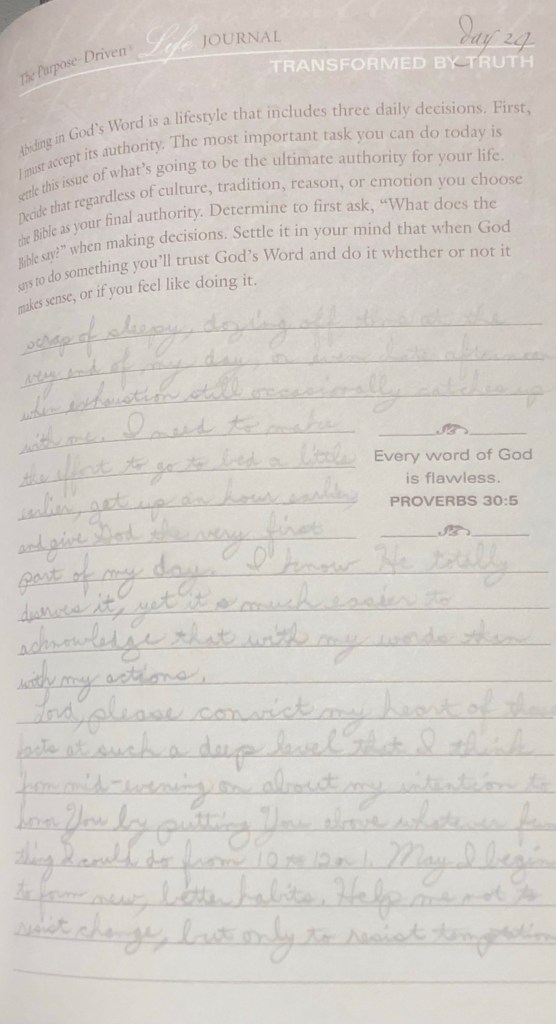 The Purpose-Driven® Life JOURNAL
day 29
TRANSFORMED BY TRUTH
Abiding in God's Word is a lifestyle that includes three daily decisions. First,
I must accept its authority. The most important task you can do today is
settle this issue of what's going to be the ultimate authority for your life.
Decide that regardless of culture, tradition, reason, or emotion you choose
the Bible as your final authority. Determine to first ask, "What does the
Bible say?" when making decisions. Settle it in your mind that when God
says to do something you'll trust God's Word and do it whether or not it
makes sense, or if you feel like doing it.
scrap of sleepy, dozing off time at the
very end of my day, or even late afternoon
when exhaustion still occasionally catches up
with me. I need to make
the effort to go to bed a little
earlier, get up an hour earlier
and give God the very first
part of my day. I know He totally
deserves it, yet it is much easier to
acknowledge that with my words than
with my actions.
Lord, please convict my heart of these
facts at such a deep level that I think
from mid-evening on about my intention to
honor You by putting You above whatever fun
thing I could do from 10 to 12 or 1. May I begin
to form new, better habits. Help me not to
resist change, but only to resist temptation
Every word of God
is flawless.
PROVERBS 30:5